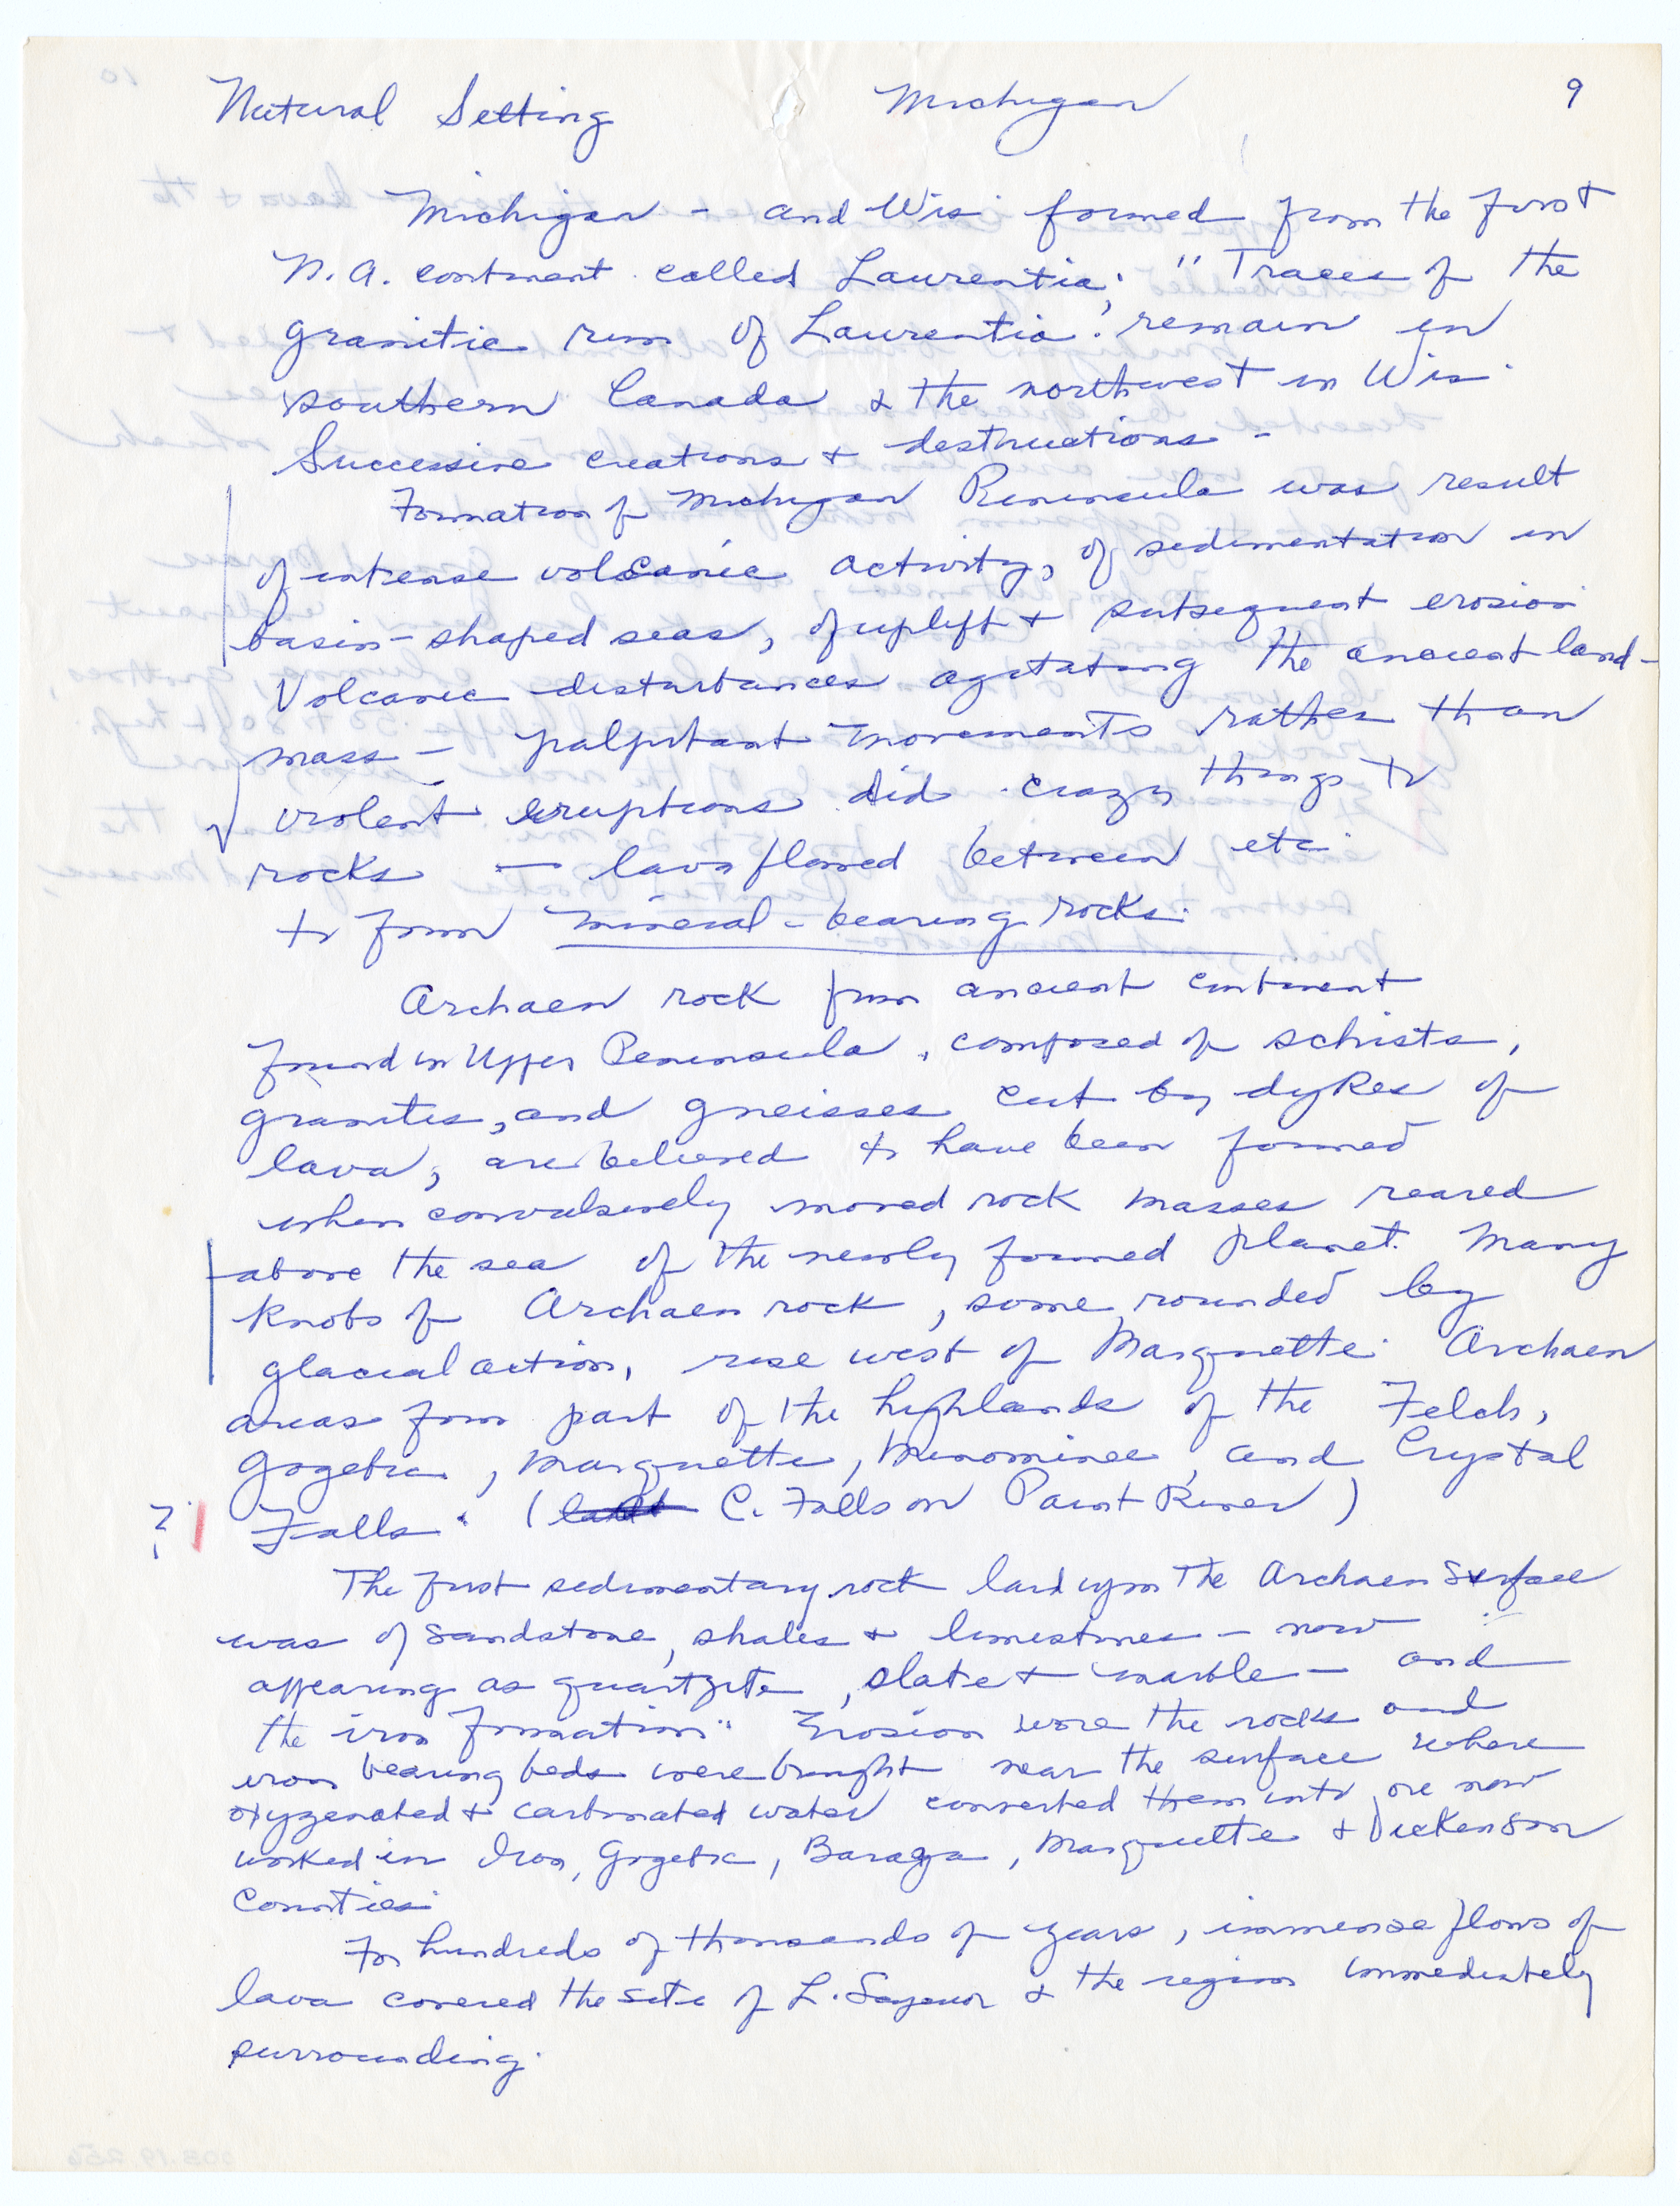 Natural Setting Michigan 9
Michigan - and Wis formed from the first
N.A. continent called Laurentia; "Traces of the
granitic rim of Laurentia: remain in
southern Canada & the northwest in Wis.
Successive creations & destructions -
Formation of Michigan Peninsula was result
of intense volcanic activity, of sedimentation in
basin-shaped seas, of uplift & subsequent erosion
Volcanic disturbances agitating the ancient land-
mass - palpitant movements rather than
violent eruptions did crazy things to
rocks - lava flowed between etc
to form mineral-bearing rocks.
Archaen rock from ancient continent
found in Upper Peninsula, composed of schists,
granites, and gneisses cut by dykes of
lava, are believed to have been formed
when convulsively moved rock masses reared
above the sea of the newly formed planet. Many
knobs of Archaen rock, some rounded by
glacial action, rise west of Marquette. Archaen
areas form part of the highlands of the Felch,
Gogebic, Marquette, Menominee, and Crystal
? Falls. ( C. Falls on Paint River)
The first sedimentary rock laid upon the Archaen surface
was of sandstone, shales & limestones - now
appearing as quartzite, slate & marble - and
the iron formation." Erosion wore the rocks and
iron bearing beds were brought near the surface where
oxygenated & carbonated water converted them into ore now
worked in Iron, Gogebic, Baraga, Marquette & Dickenson
Counties.
For hundreds of thousands of years, immense flows of
lava covered the site of L. Superior & the region immediately
surrounding.